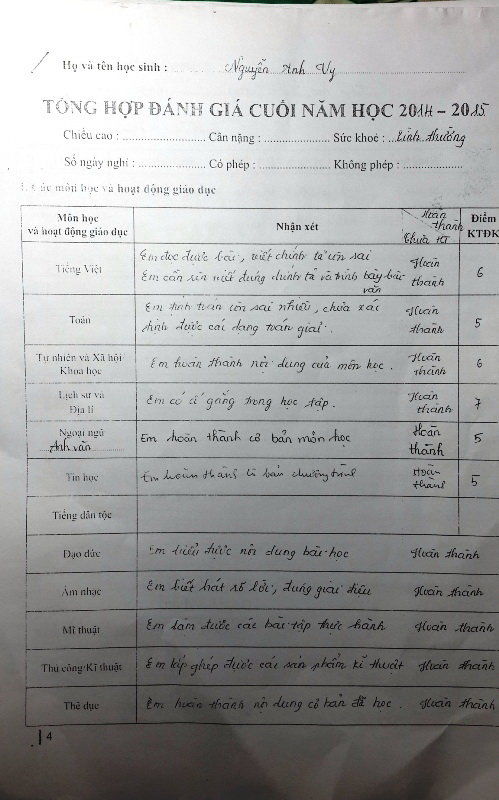 Họ và tên học sinh : Nguyễn Anh Vy
TỔNG HỢP ĐÁNH GIÁ CUỐI NĂM HỌC 2014 – 2015
Chiều cao : .................... Cân nặng : .................... Sức khoẻ : ..Bình thường
Số ngày nghỉ : .................... Có phép : .................... Không phép : ....................
1. Các môn học và hoạt động giáo dục
Môn học và hoạt động giáo dục Nhận xét Hoàn thành Chưa HT Điểm KTĐK
Tiếng Việt Em đọc được bài, viết chính tả còn sai Hoàn thành 6
Em cần rèn viết đúng chính tả và trình bày bài văn
Toán Em tính toán còn sai nhiều, chưa xác Hoàn thành 5
định được các dạng toán giải.
Tự nhiên và Xã hội Khoa học Em hoàn thành nội dung của môn học. Hoàn thành 6
Lịch sử và Địa lí Em có cố gắng trong học tập. Hoàn thành 7
Ngoại ngữ Anh văn Em hoàn thành cơ bản môn học Hoàn thành 5
Tin học Em hoàn thành cơ bản chương trình Hoàn thành 5
Tiếng dân tộc
Đạo đức Em hiểu được nội dung bài học Hoàn thành
Âm nhạc Em biết hát rõ lời, đúng giai điệu Hoàn thành
Mĩ thuật Em làm được các bài tập thực hành Hoàn thành
Thủ công/Kĩ thuật Em lắp ghép được các sản phẩm kĩ thuật Hoàn thành
Thể dục Em hoàn thành nội dung cơ bản đã học. Hoàn thành
4